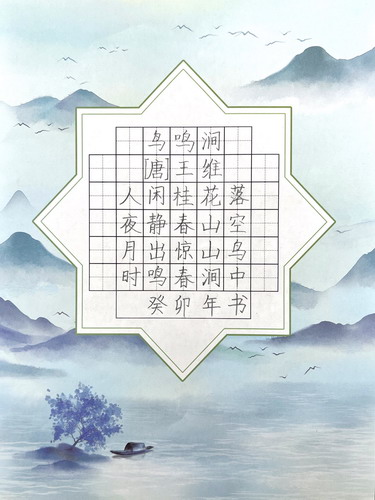 鸟鸣涧
[唐]王维
人闲桂花落
夜静春山空
月出惊山鸟
时鸣春涧中
癸卯年书